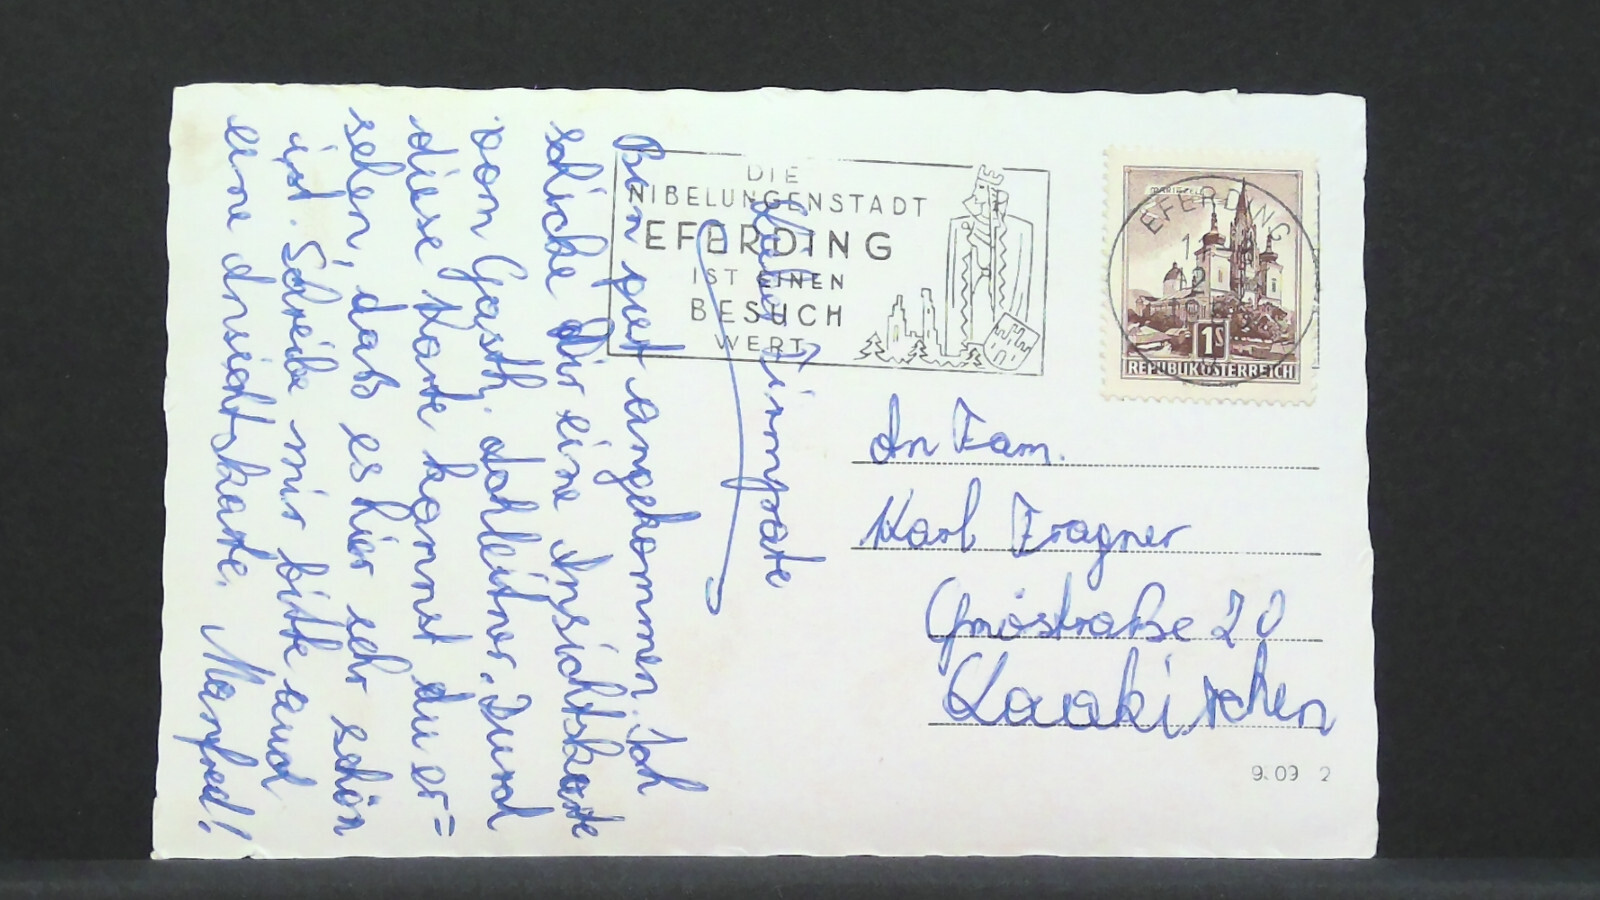 DIE
NIBELUNGENSTADT
EFERDING
IST EINEN
BESUCH
WERT
MARIAZELL
EFERDING
1S
REPUBLIK ÖSTERREICH
Bin gut angekommen. Ich
schicke Dir eine Ansichtskarte
vom Gasth. Dahleitner. Durch
diese Karte kannst du er=
sehen, daß es hier sehr schön
ist. Schreibe mir bitte auch
eine Ansichtskarte. Manfred!
An Fam.
Karl Fragner
20
Laakirchen
9.09 2